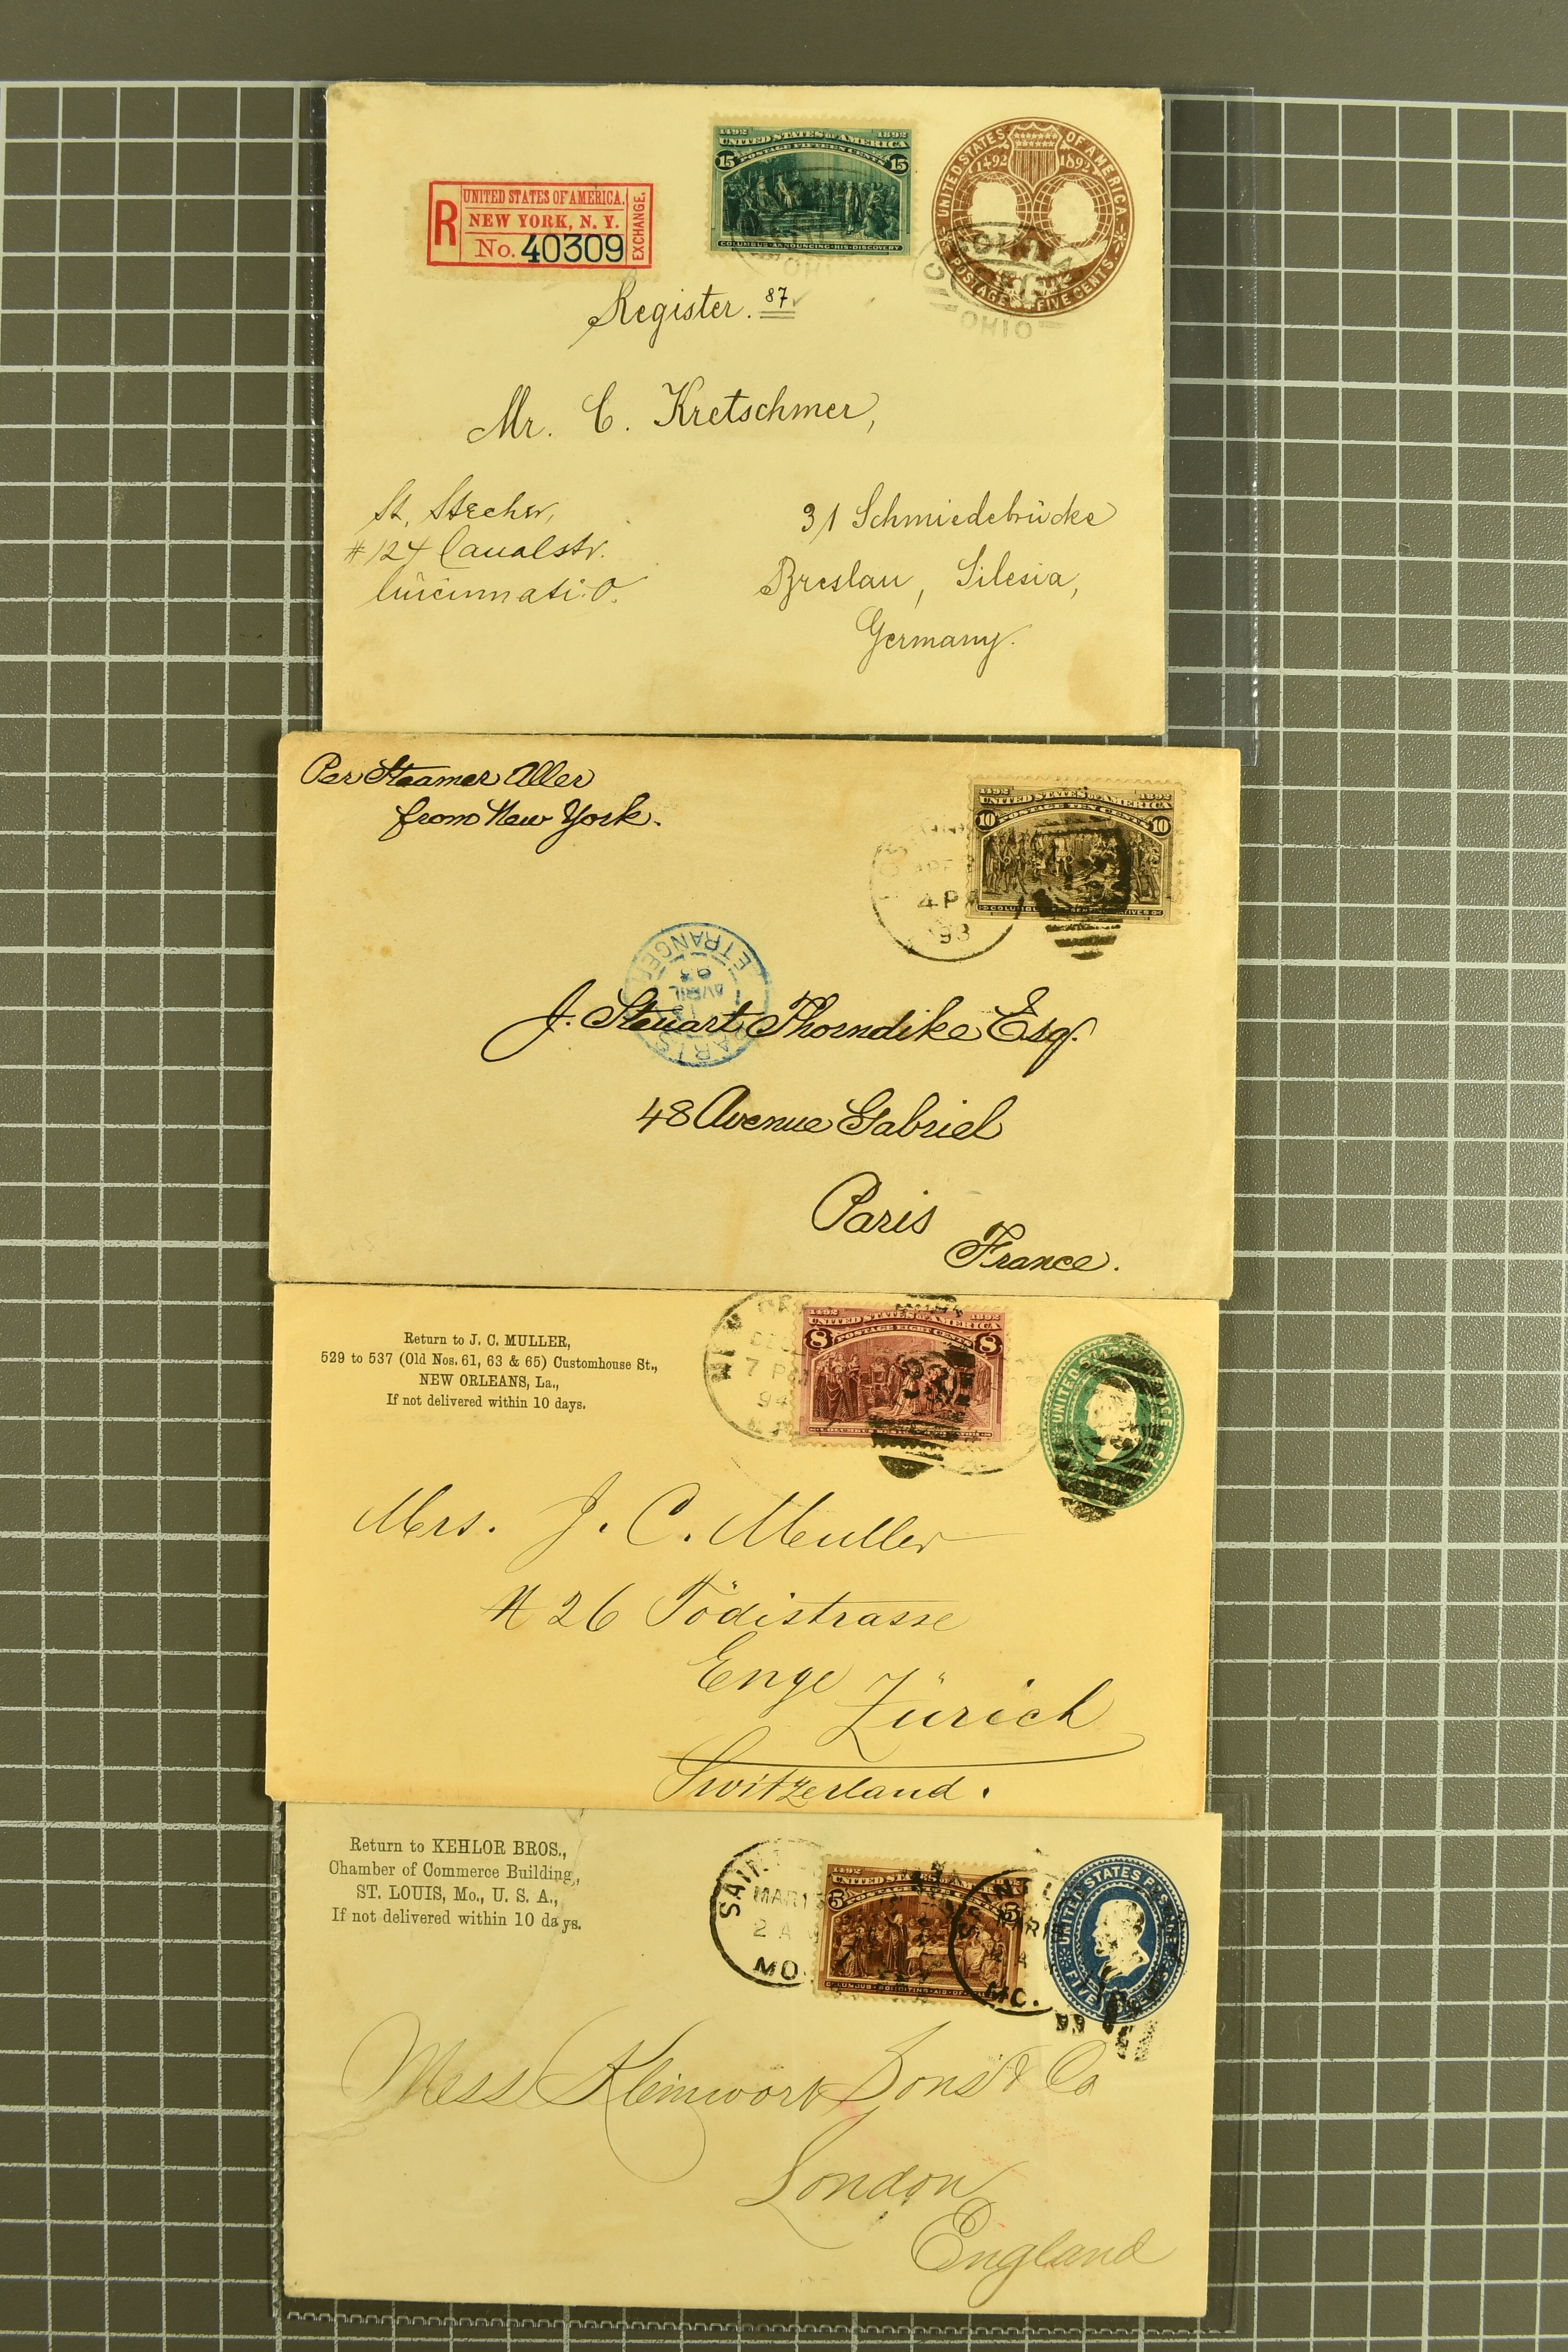 1492 1892
UNITED STATES OF AMERICA
POSTAGE FIFTEEN CENTS
15 15
COLUMBUS ANNOUNCING HIS DISCOVERY
UNITED STATES OF AMERICA.
1492 1892
POSTAGE FIVE CENTS.
OHIO
R
UNITED STATES OF AMERICA.
NEW YORK, N. Y.
No. 40309
EXCHANGE.
Register. 87
Mr. C. Kretschmer,
St. Stecher,
#124 Canalstr.
Cincinnati. O.
31 Schmiedebrücke
Breslau, Silesia,
Germany.
Per Steamer Aller
from New York.
1492 1892
UNITED STATES OF AMERICA
POSTAGE TEN CENTS
10 10
4 PM
93
PARIS
13
AVRIL
93
ETRANGER
J. Steuart Thorndike Esq.
48 Avenue Gabriel
Paris
France.
Return to J. C. MULLER,
529 to 537 (Old Nos. 61, 63 & 65) Customhouse St.,
NEW ORLEANS, La.,
If not delivered within 10 days.
7 PM
94
1492 1892
UNITED STATES OF AMERICA
POSTAGE EIGHT CENTS
8 8
UNITED STATES
Mrs. J. C. Muller
N 26 Tödistrasse
Enge Zürich
Switzerland.
Return to KEHLOR BROS.,
Chamber of Commerce Building,
ST. LOUIS, Mo., U. S. A.,
If not delivered within 10 days.
SAINT
MAR 15
2 A
MO.
1492
UNITED STATES OF AMERICA
5 5
COLUMBUS SOLICITING AID OF
MO.
UNITED STATES POSTAGE
FIVE
Mess Kleinwork Sons & Co
London
England